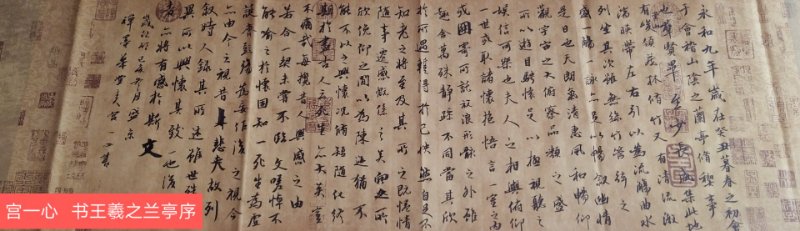 永和九年歲在癸丑暮春之初會
于會稽山陰之蘭亭脩稧事
也羣賢畢至少長咸集此地
有峻領茂林脩竹又有清流激
湍暎帶左右引以為流觴曲水
列坐其次雖無絲竹管絃之
盛一觴一詠亦足以暢敘幽情
是日也天朗氣清惠風和暢仰
觀宇宙之大俯察品類之盛
所以遊目騁懷足以極視聽之
娛信可樂也夫人之相與俯仰
一世或取諸懷抱悟言一室之內
或因寄所託放浪形骸之外雖
趣舍萬殊靜躁不同當其欣
於所遇蹔得於己快然自足不
知老之將至及其所之既惓情
隨事遷感慨係之矣向之所
欣俛仰之閒以為陳迹猶不
能不以之興懷況脩短隨化終
期於盡古人云死生亦大矣豈
不痛哉每攬昔人興感之由
若合一契未嘗不臨文嗟悼不
能喻之於懷固知一死生為虛
誕齊彭殤為妄作後之視今
亦由今之視昔悲夫故列
敘時人錄其所述雖世殊事
異所以興懷其致一也後
將有感於斯文
宫一心 书王羲之兰亭序